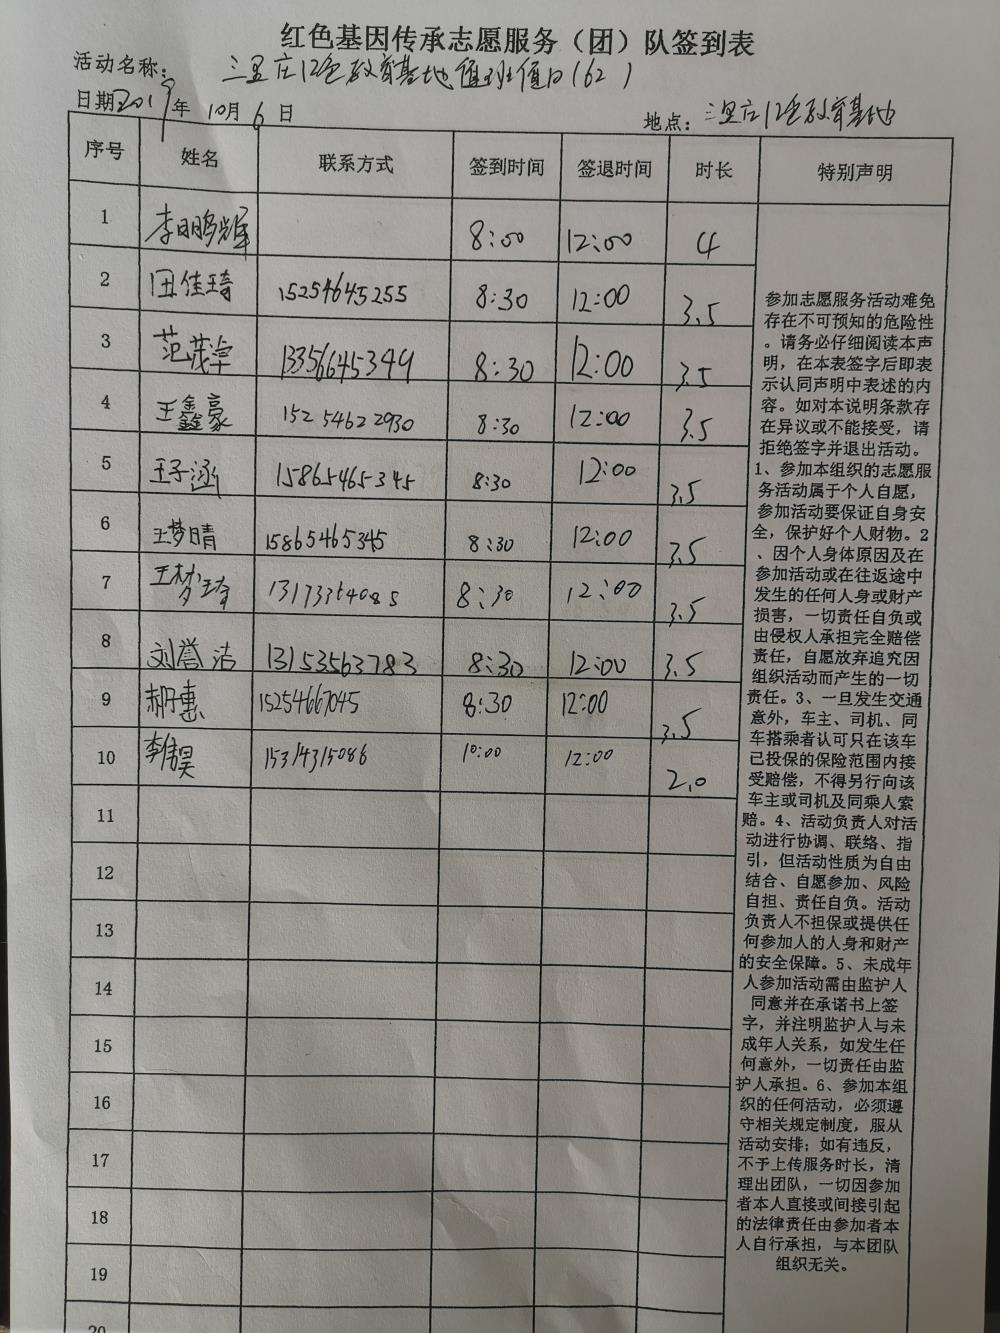 红色基因传承志愿服务（团）队签到表
活动名称： 三里庄红色教育基地值班值日（62）
日期2019年 10月 6日 地点：三里庄红色教育基地
序号 姓名 联系方式 签到时间 签退时间 时长 特别声明
1 李明鹏辉 8:00 12:00 4
2 田佳琦 15254645255 8:30 12:00 3.5
3 范茂淖 13356645349 8:30 12:00 3.5
4 王鑫豪 15254622930 8:30 12:00 3.5
5 王子涵 15865465345 8:30 12:00 3.5
6 王梦晴 15865465345 8:30 12:00 3.5
7 王梦琦 13173354085 8:30 12:00 3.5
8 刘誉洁 13153563783 8:30 12:00 3.5
9 郝子惠 15254667045 8:30 12:00 3.5
10 李倩昊 15314315086 10:00 12:00 2.0
11
12
13
14
15
16
17
18
19
20
参加志愿服务活动难免
存在不可预知的危险性
。请务必仔细阅读本声
明，在本表签字后即表
示认同声明中表述的内
容。如对本说明条款存
在异议或不能接受，请
拒绝签字并退出活动。
1、参加本组织的志愿服
务活动属于个人自愿，
参加活动要保证自身安
全，保护好个人财物。2
、因个人身体原因及在
参加活动或在往返途中
发生的任何人身或财产
损害，一切责任自负或
由侵权人承担完全赔偿
责任，自愿放弃追究因
组织活动而产生的一切
责任。3、一旦发生交通
意外，车主、司机、同
车搭乘者认可只在该车
已投保的保险范围内接
受赔偿，不得另行向该
车主或司机及同乘人索
赔。4、活动负责人对活
动进行协调、联络、指
引，但活动性质为自由
结合、自愿参加、风险
自担、责任自负。活动
负责人不担保或提供任
何参加人的人身和财产
的安全保障。5、未成年
人参加活动需由监护人
同意并在承诺书上签
字，并注明监护人与未
成年人关系，如发生任
何意外，一切责任由监
护人承担。6、参加本组
织的任何活动，必须遵
守相关规定制度，服从
活动安排；如有违反，
不予上传服务时长，清
理出团队，一切因参加
者本人直接或间接引起
的法律责任由参加者本
人自行承担，与本团队
组织无关。